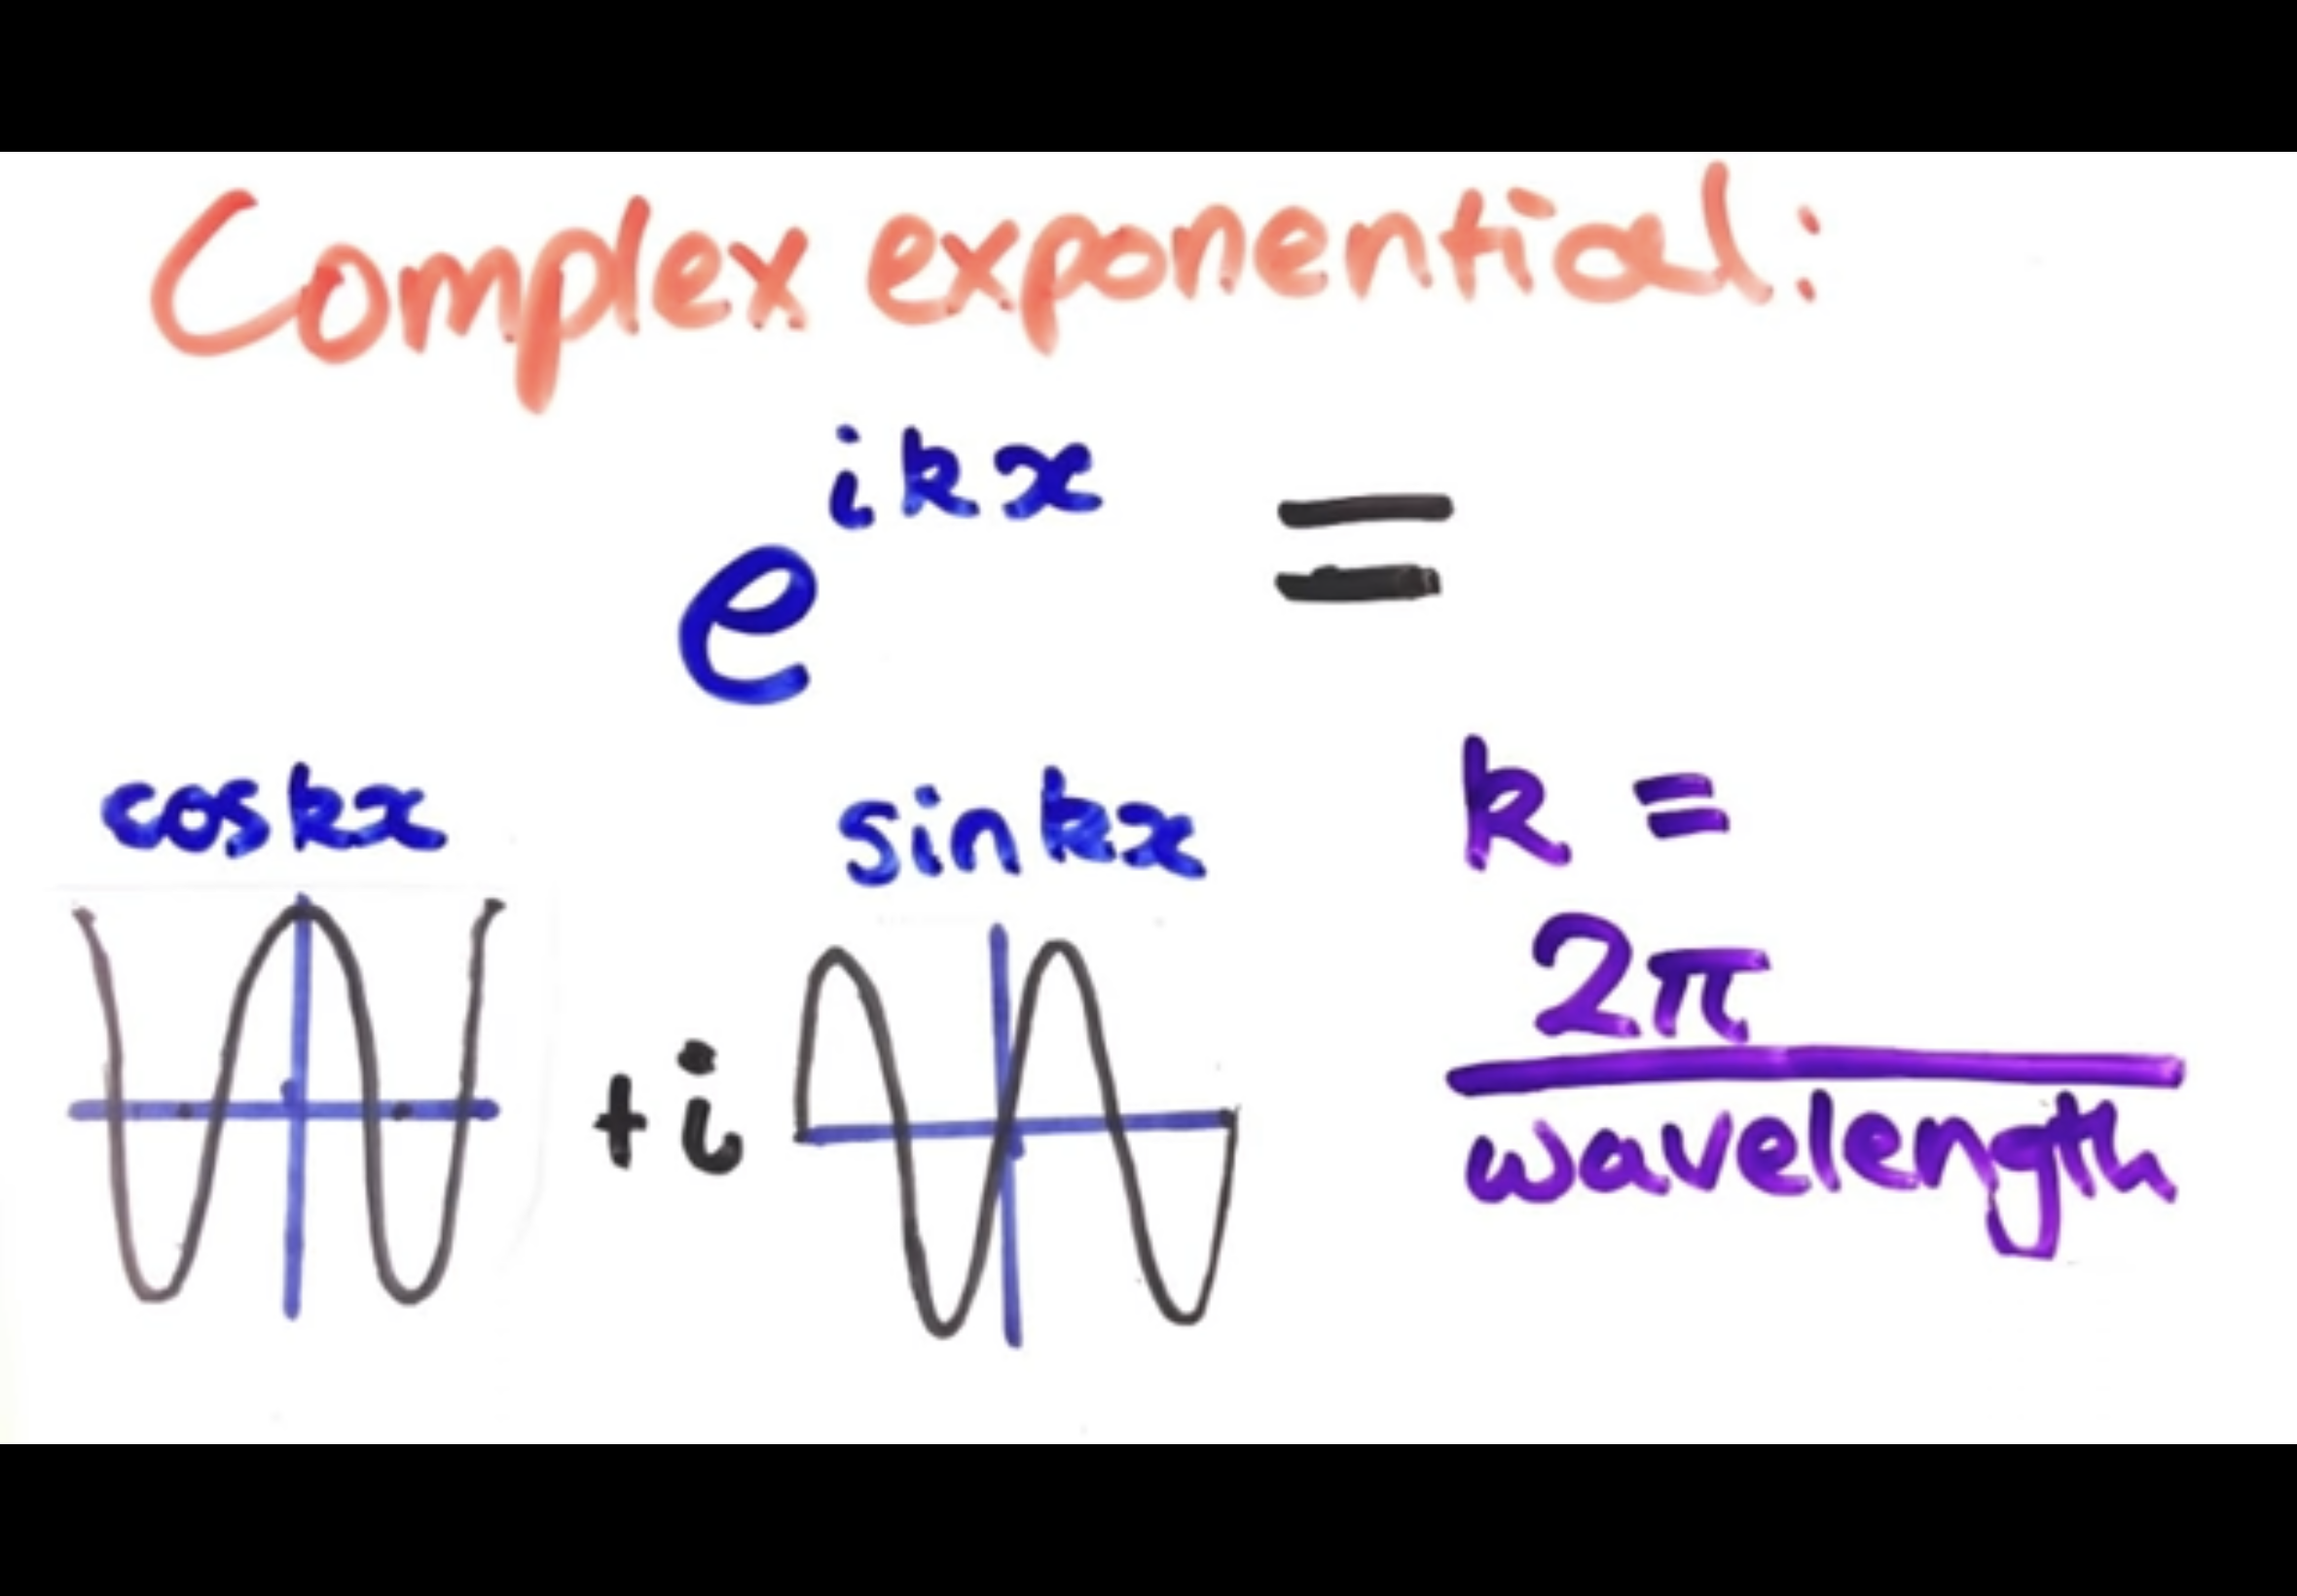 Complex exponential:
e^{ikx} =
coskx
sinkx
+i
k =
2π
wavelength